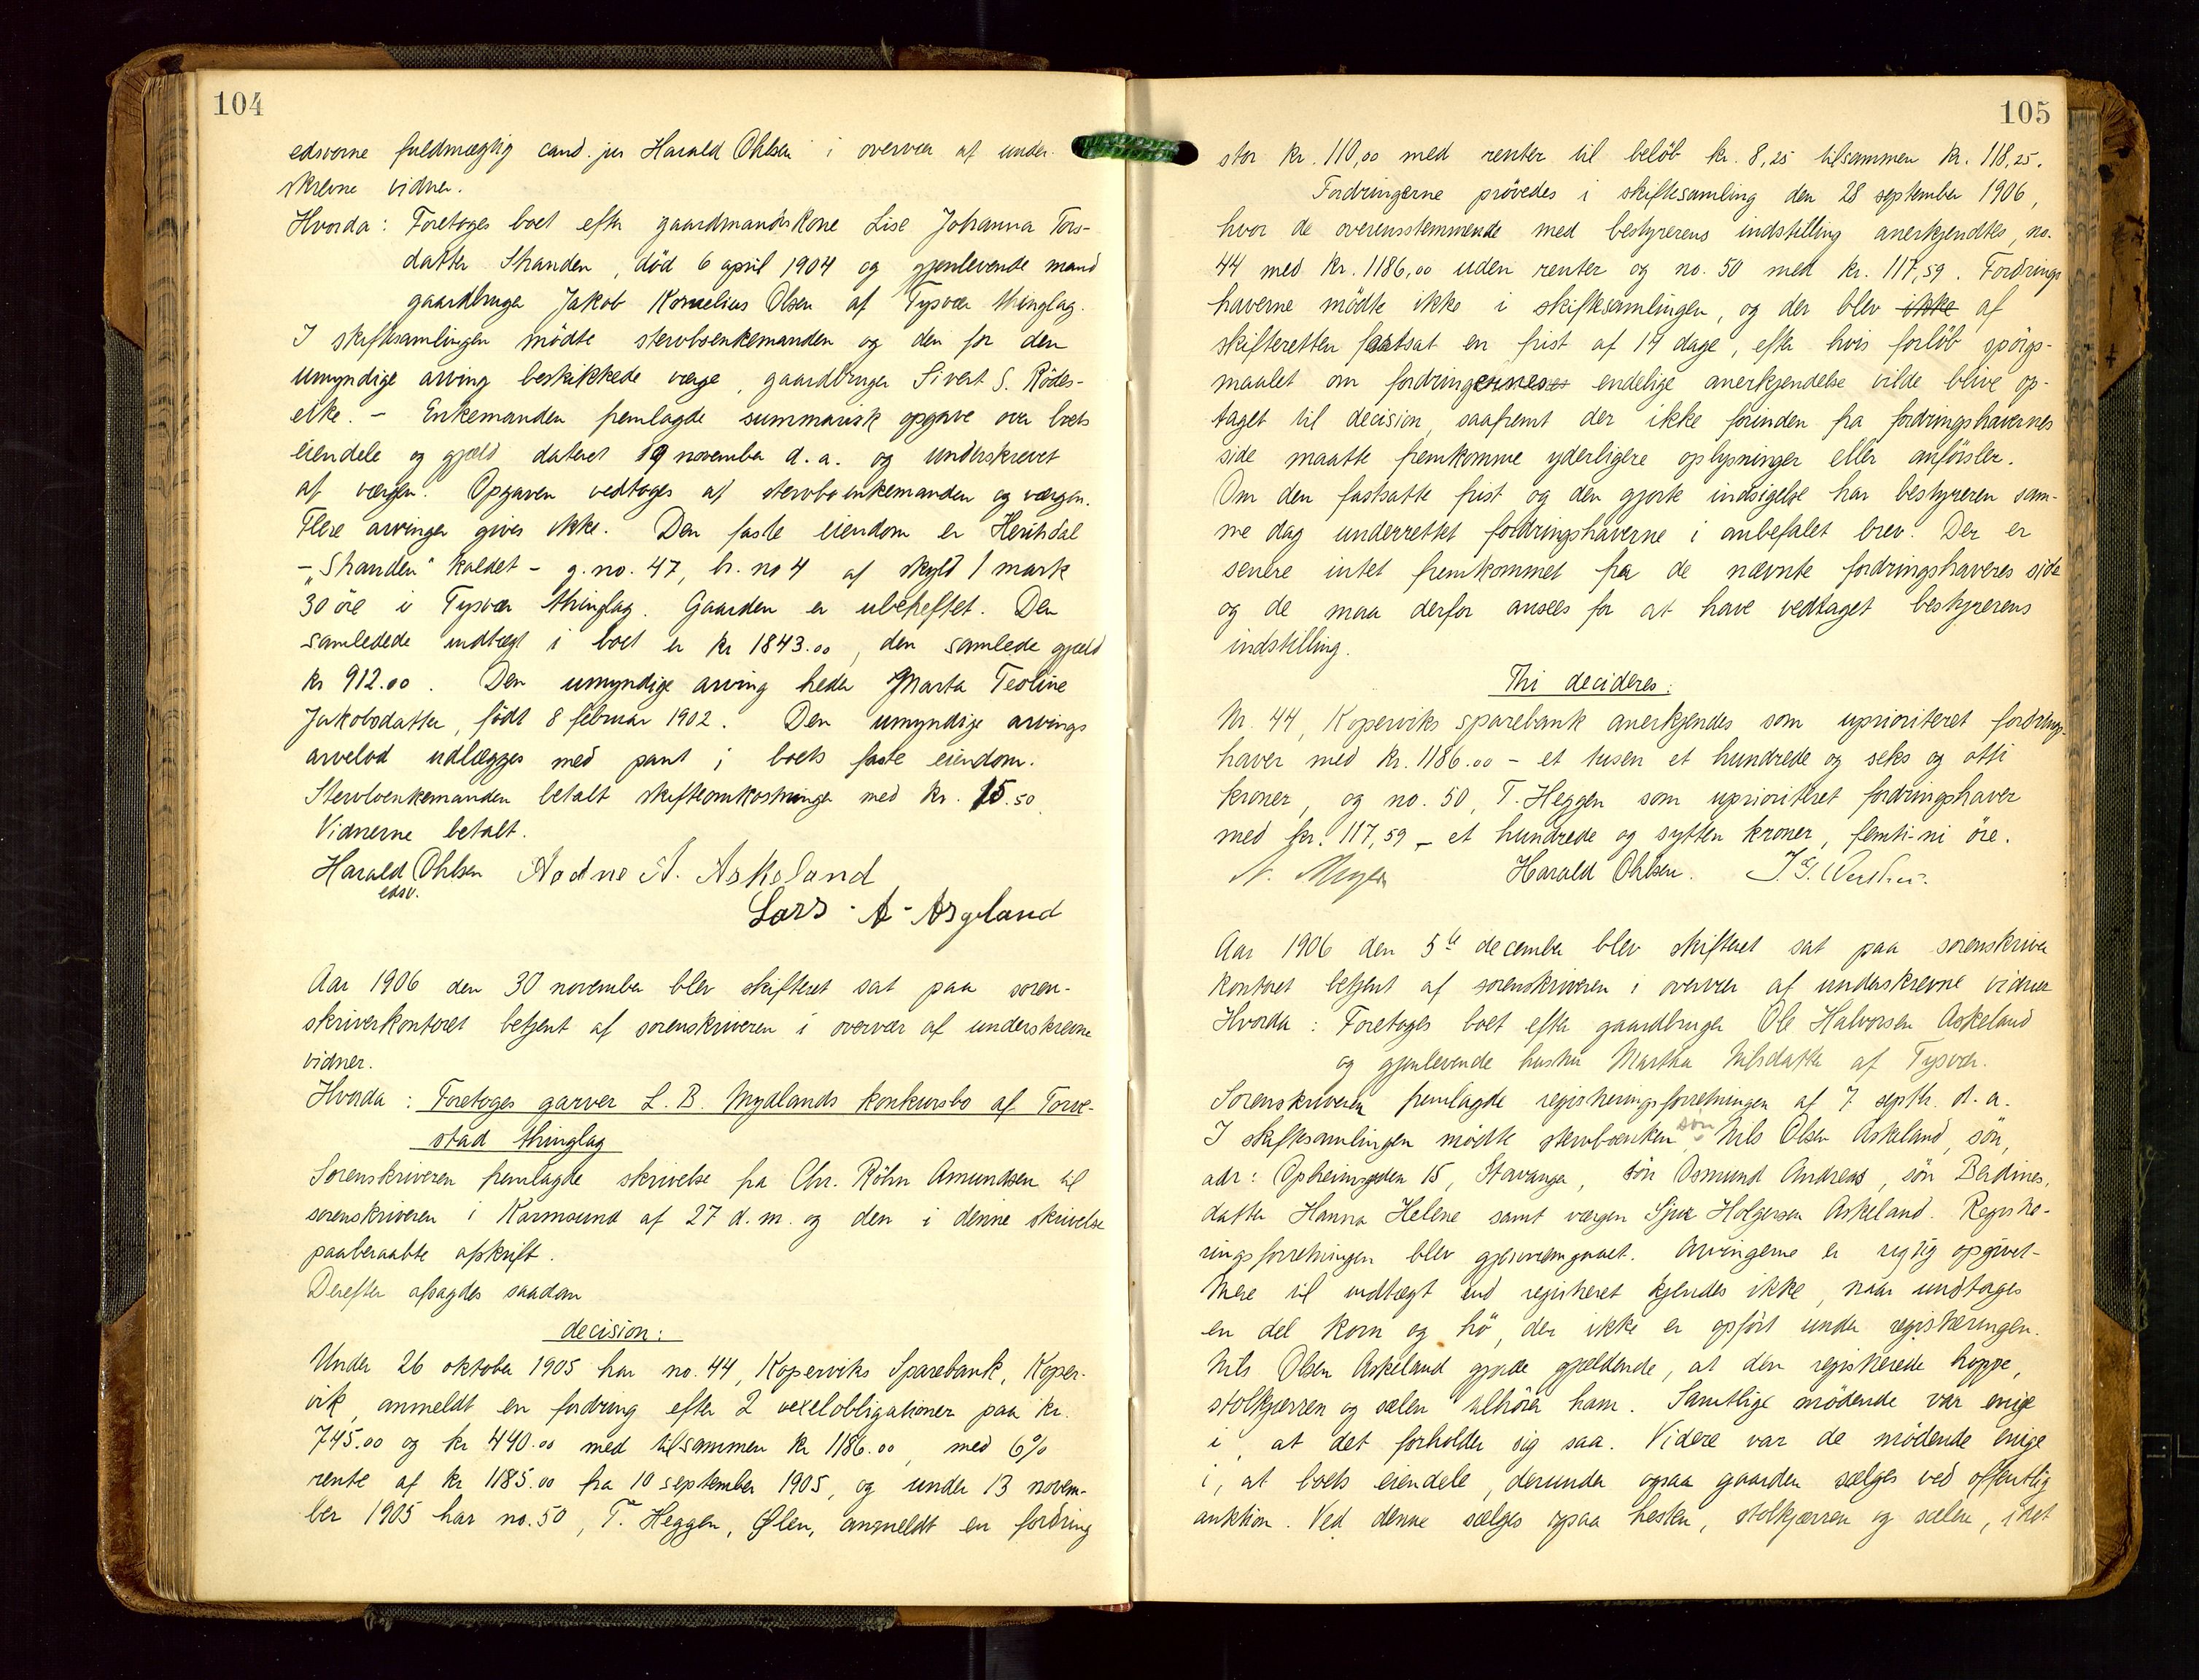 104
edsvorne fuldmægtig cand. jur Harald Ohlsen i overvær af under-
skrevne vidner.
Hvorda: Foretoges boet efter gaardmandskone Lise Johanna Tors-
datter Stranden, död 6 april 1904 og gjenlevende mand
gaardbruger Jakob Kornelius Olsen af Tysvær thinglag.
I skiftesamlingen mödte stervboenkemanden og den for den
umyndige arving beskikkede verge, gaardbruger Sivert S. Rödes-
eike. - Enkemanden fremlagde summarisk opgave over boets
eiendele og gjæld dateret 19 november d. a. og underskrevet
af værgen. Opgaven vedtoges af stervboenkemanden og værgen.
Flere arvinger gives ikke. Den faste eiendom er
- "Stranden" kaldet - g. no. 47, br. no 4 af skyld 1 mark
30 öre i Tysvær thinglag. Gaarden er ubeheftet. Den
samledede indtægt i boet er kr 1843.00, den samlede gjæld
kr 912.00. Den umyndige arving heder Marta Teoline
Jakobsdatter, födt 8 februar 1902. Den umyndige arvings
arvelod udlægges med pant i boets faste eiendom.
Stervboenkemanden betalt skifteomkostninger med kr. 15.50.
Vidnerne betalt.
Harald Ohlsen Aadne A. Askeland
edsv.
Lars - A - Asgeland
Aar 1906 den 30 november blev skifteret sat paa soren-
skriverkontoret betjent af sorenskriveren i overvær af underskrevne
vidner.
Hvorda: Foretoges garver L. B. Mydlands konkursbo af Torve-
stad thinglag
Sorenskriveren fremlagde skrivelse fra Chr. Röhn Amundsen til
sorenskriveren i Karmsund af 27 d. m. og den i denne skrivelse
paaberaabte afskrift.
Derefter afsagdes saadan
decision:
Under 26 oktober 1905 har no. 44, Koperviks Sparebank, Koper-
vik, anmeldt en fordring efter 2 vexelobligationer paa kr.
745.00 og kr 440.00 med tilsammen kr 1186.00, med 6%
rente af kr 1185.00 fra 10 september 1905, og under 13 novem-
ber 1905 har no. 50, T. Heggen, Ølen, anmeldt en fordring
105
stor kr. 110,00 med renter til belöb kr. 8,25 tilsammen kr. 118,25.
Fordringerne prövedes i skiftesamling den 28 september 1906,
hvor de overensstemmende med bestyrerens indstilling anerkjendtes, no.
44 med kr. 1186,00 uden renter og no. 50 med kr. 117,59. Fordrings
haverne mödte ikke i skiftesamlingen, og der blev ikke af
skifteretten fastsat en frist af 14 dage, efter hvis forlöb spörgs-
maalet om fordringernes endelige anerkjendelse vilde blive op-
taget til decision, saafremt der ikke forinden fra fordringshavernes
side maatte fremkomme yderligere oplysninger eller anförsler.
Om den fastsatte frist og den gjorte indsigelse har bestyreren sam-
me dag underrettet fordringshaverne i anbefalet brev. Der er
senere intet fremkommet fra de nævnte fordringshaveres side
og de maa derfor ansees for at have vedtaget bestyrerens
indstilling.
Thi decideres:
Nr. 44, Koperviks sparebank anerkjendes som uprioriteret fordrings-
haver med kr. 1186.00 - et tusen et hundrede og seks og otti
kroner, og no. 50, T. Heggen som uprioriteret fordringshaver
med kr. 117,59 - et hundrede og sytten kroner, femti-ni öre.
Harald Ohlsen.
Aar 1906 den 5te december blev skifteret sat paa sorenskriver
kontoret betjent af sorenskriveren i overvær af underskrevne vidner
Hvorda: Foretoges boet efter gaardbruger Ole Halvorsen Askeland
og gjenlevende hustru Martha Nilsdatter af Tysvær.
Sorenskriveren fremlagde registreringsforretningen af 7 septbr. d. a.
I skiftesamlingen mödte stervboenken, sön Nils Olsen Askeland, sön,
adr: Opheimgaden 15, Stavanger, sön Osmund Andreas, sön Berdines,
datter Hanna Helene samt værgen Sjur Holgersen Askeland. Registre-
ringsforretningen blev gjennemgaaet. Arvingerne er rigtig opgivet-
Mere til indtægt end registreret kjendes ikke, naar undtages
en del korn og hö, der ikke er opfört under registreringen.
Nils Olsen Askeland gjorde gjældende, at den registrerede hoppe,
stolkjærren og sælen tilhörer ham. Samtlige mödende var enige
i at det forholder sig saa. Videre var de mödende enige
i, at boets eiendele, derunder ogsaa gaarden sælges ved offentlig
auktion. Ved denne sælges ogsaa hesten, stolkjærren og sælen, idet